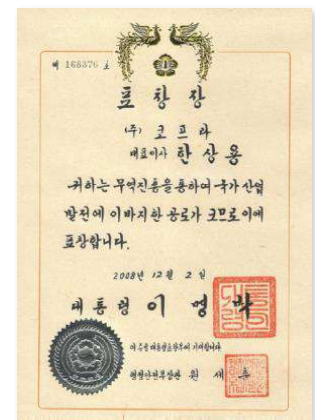 제 168376 호
표창장
(주) 코프라
대표이사 한상용
귀하는 무역진흥을 통하여 국가 산업
발전에 이바지한 공로가 크므로 이에
표창합니다.
2008년 12월 2일
대통령 이명박
이 증을 대통령표창부에 기재합니다.
행정안전부장관 원세훈